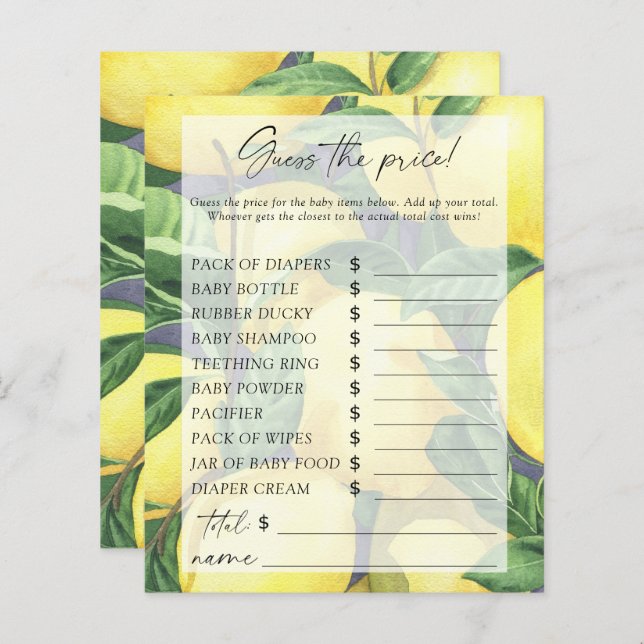 Guess the price!
Guess the price for the baby items below. Add up your total.
Whoever gets the closest to the actual total cost wins!
PACK OF DIAPERS $
BABY BOTTLE $
RUBBER DUCKY $
BABY SHAMPOO $
TEETHING RING $
BABY POWDER $
PACIFIER $
PACK OF WIPES $
JAR OF BABY FOOD $
DIAPER CREAM $
Total: $
name